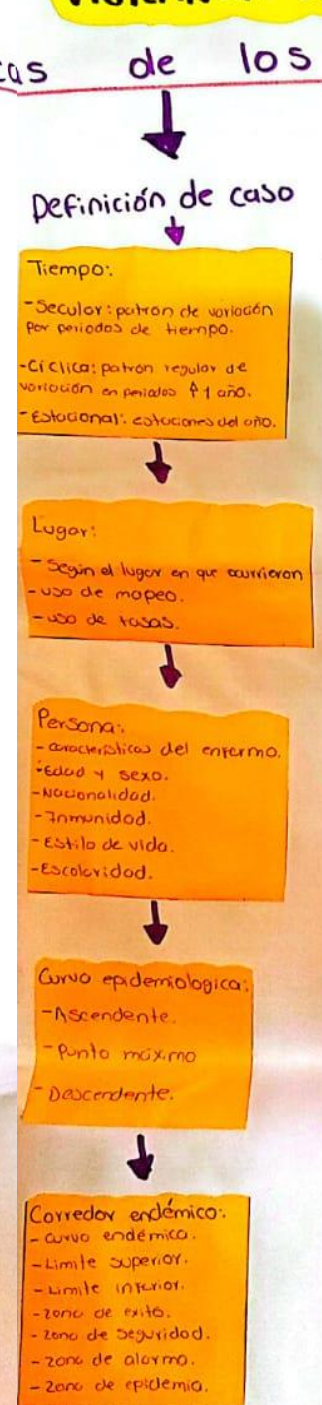 de los
Definición de caso
Tiempo:
-Secular: patrón de variación
por periodos de tiempo.
-Cíclica: patrón regular de
variación en periodos ↑ 1 año.
-Estacional: estaciones del año.
Lugar:
- Según el lugar en que ocurrieron
- uso de mapeo.
- uso de tasas.
Persona:
- características del enfermo.
-Edad y sexo.
-Nacionalidad.
-Inmunidad.
- Estilo de vida.
-Escolaridad.
Curva epidemiologica:
-Ascendente.
- Punto máximo
- Descendente.
Corredor endémico:
- curva endémica.
- Limite superior.
- Limite inferior.
- zona de exito.
- zona de seguridad.
- zona de alarma.
- zona de epidemia.